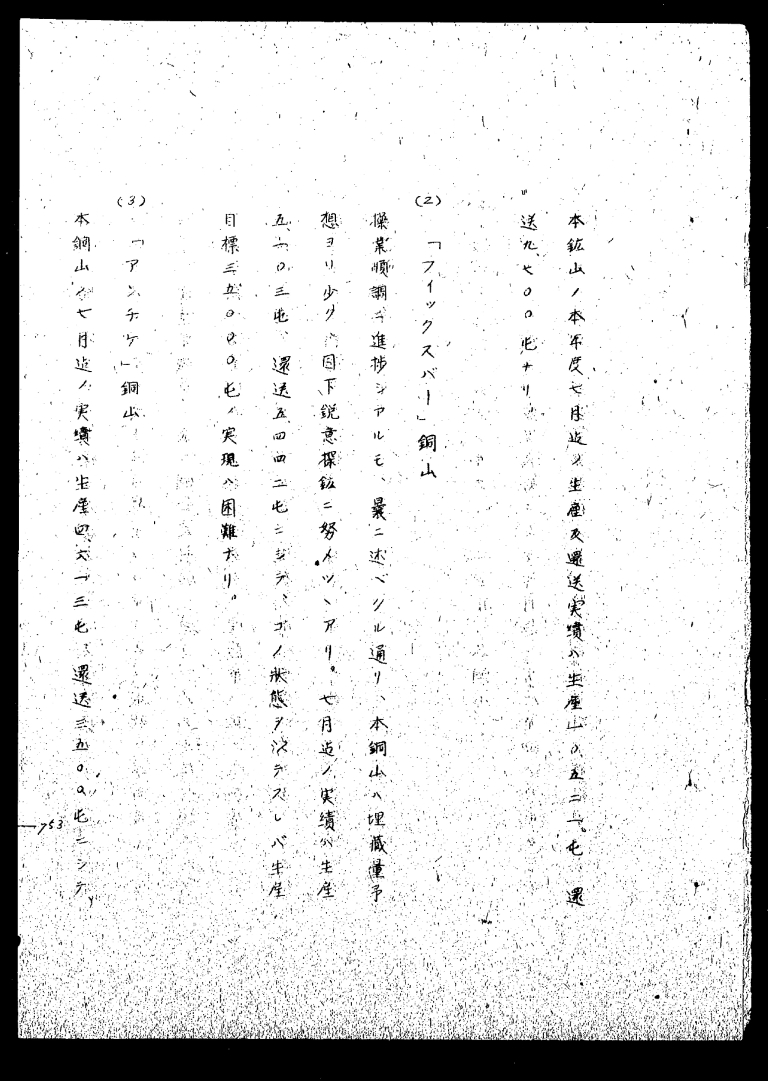 本鉱山ノ本年度七月迄ノ生産及還送実績ハ生産 〇五二二屯 還
送九七〇〇屯ナリ
(2) 「フィックスバー」銅山
操業順調ニ進捗シアルモ、曩ニ述ベタル通リ、本銅山ハ埋蔵量予
想ヨリ少ク、目下鋭意探鉱ニ努メツヽアリ。七月迄ノ実績ハ生産
五、六〇三屯、還送五四四二屯ニシテ、コノ状態ヲ以テスレバ生産
目標三五〇〇〇屯ノ実現ハ困難ナリ。
(3) 「アンチケ」銅山
本銅山ノ七月迄ノ実績ハ生産四六一三屯、還送三五〇〇屯ニシテ
753